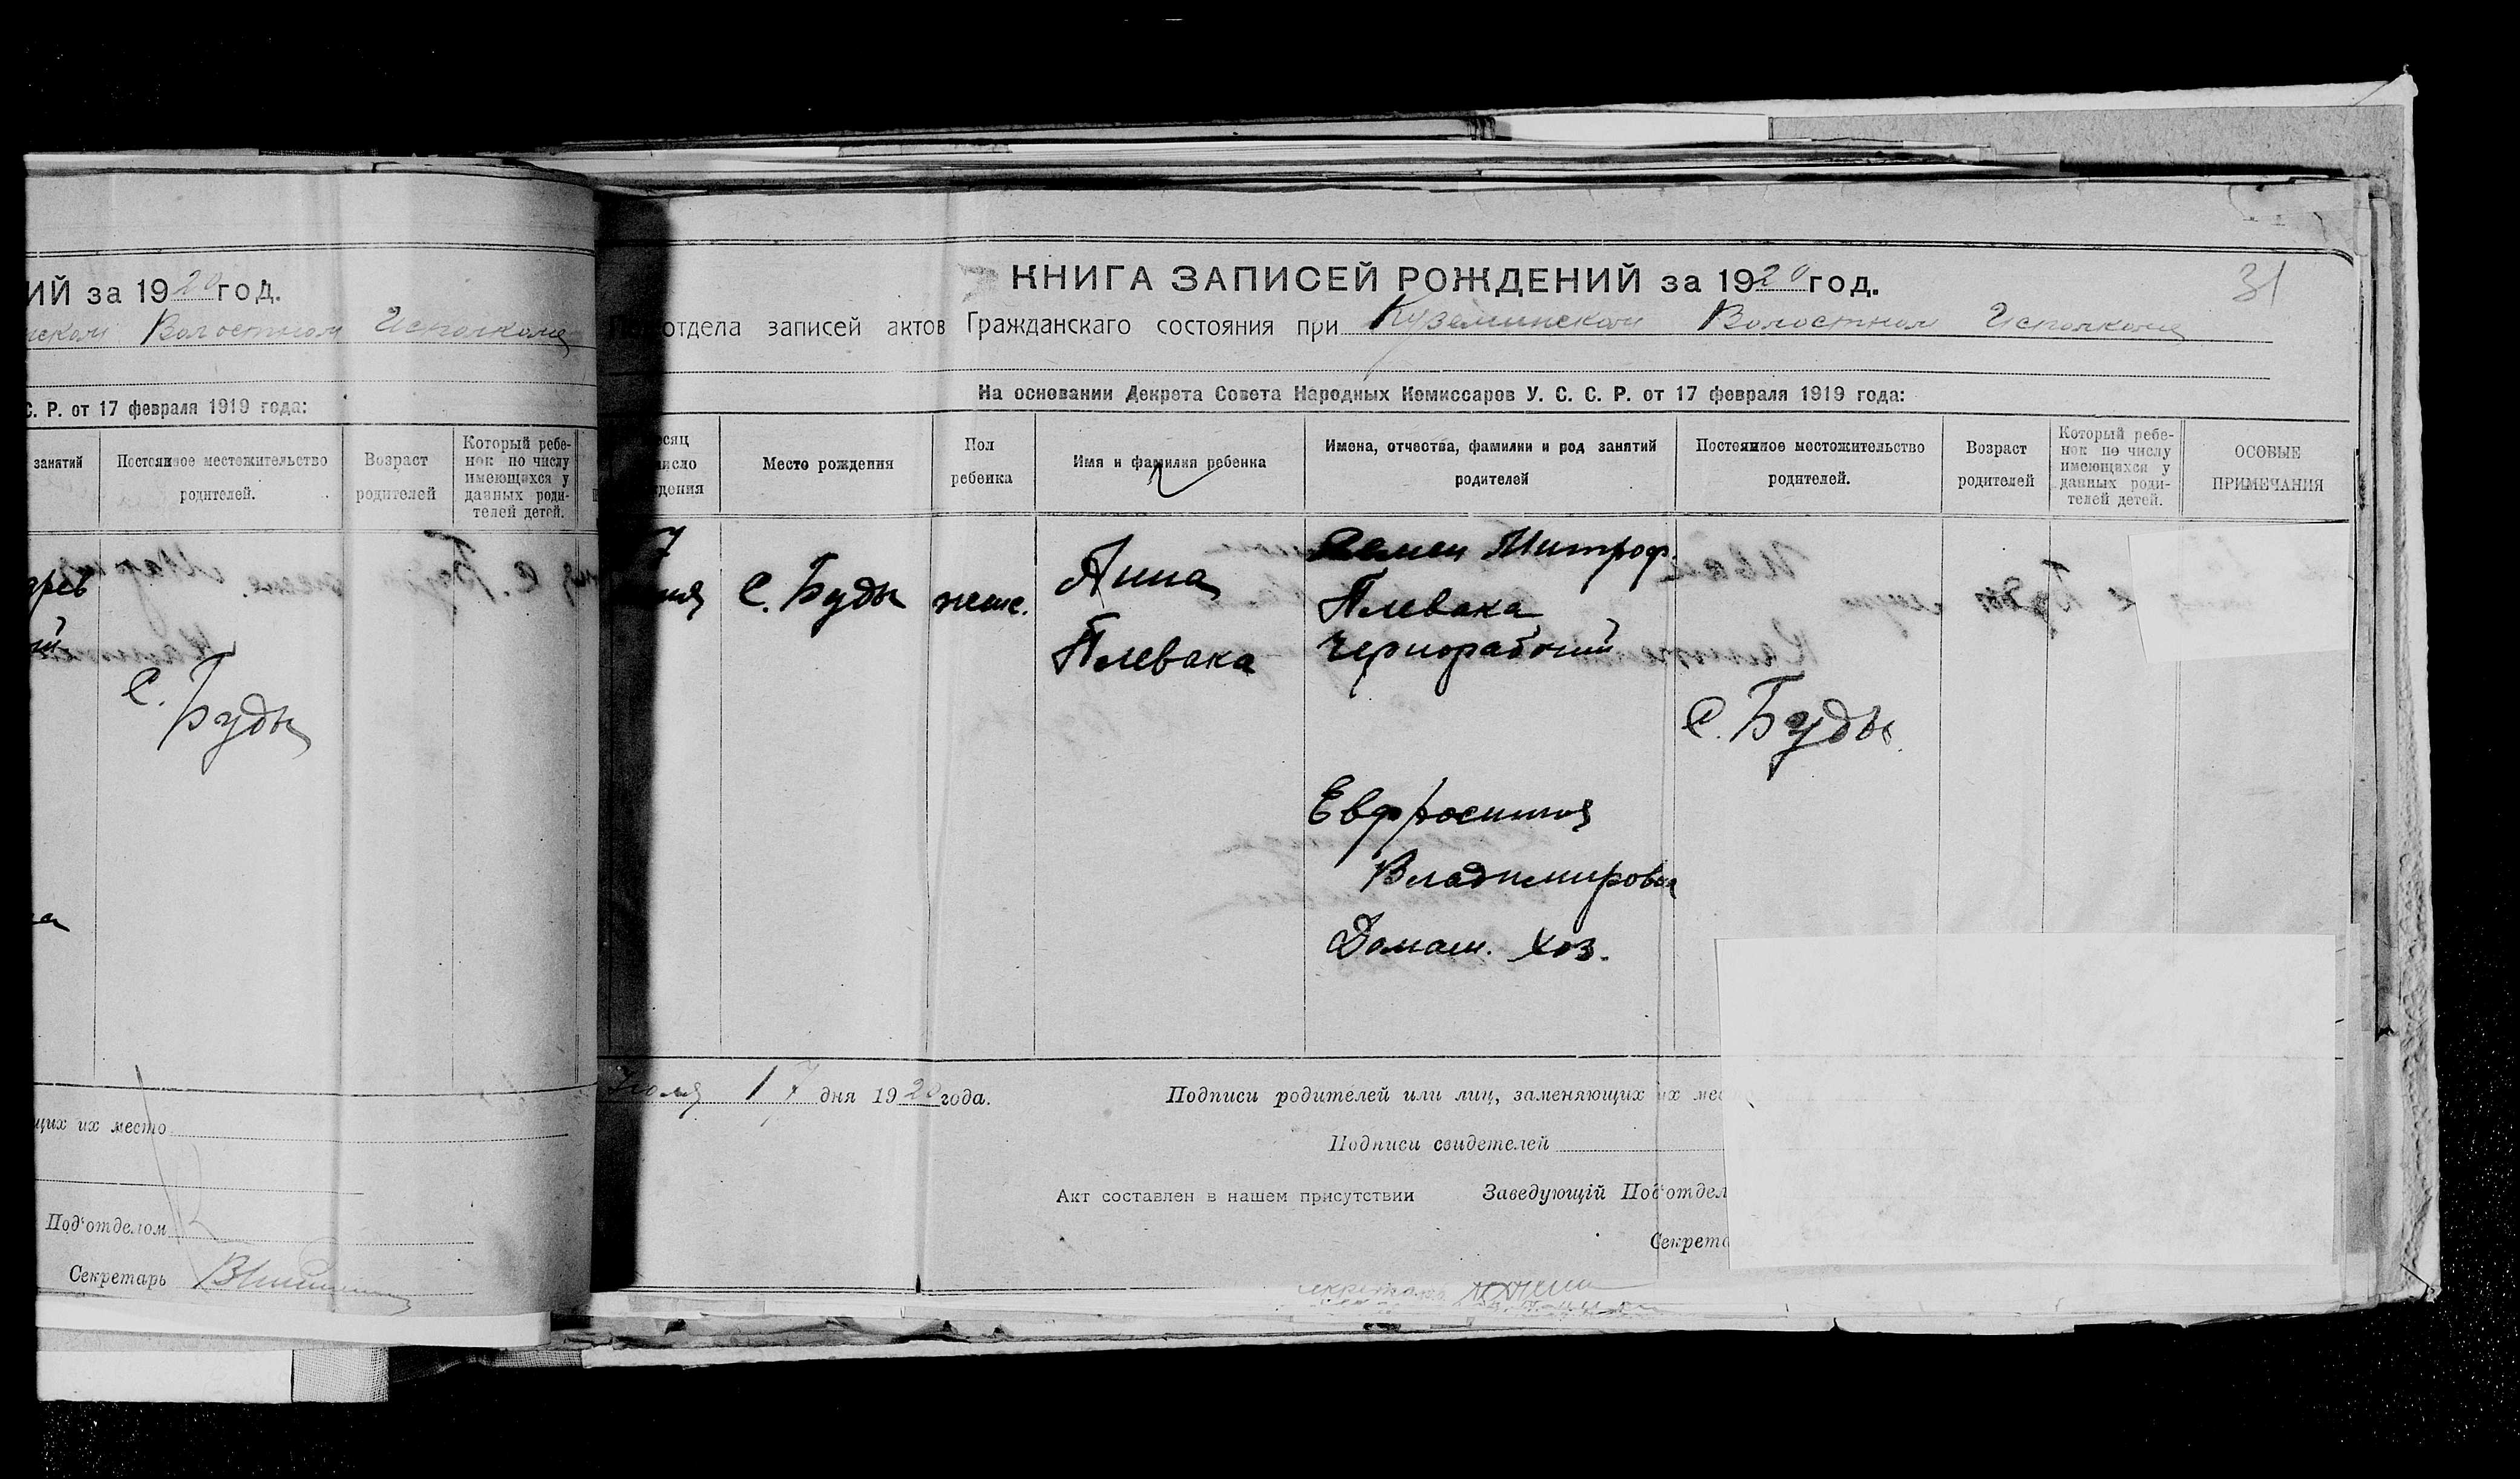 ИЙ за 1920 год.
Волостном Исполкоме
С. Р. от 17 февраля 1919 года:
занятий
Постоянное местожительство
родителей.
Возраст
родителей
Который ребе-
нок по числу
имеющихся у
данных роди-
телей детей.
С.
Буды
щих их место
Под'отделом
Секретарь
КНИГА ЗАПИСЕЙ РОЖДЕНИЙ за 1920 год.
31
отдела записей актов Гражданскаго состояния при Куземинском Волостном Исполкоме
На основании Декрета Совета Народных Комиссаров У. С. С. Р. от 17 февраля 1919 года:
Место рождения
Пол
ребенка
Имя и фамилия ребенка
Имена, отчества, фамилии и род занятий
родителей
Постоянное местожительство
родителей.
Возраст
родителей
Который ребе-
нок по числу
имеющихся у
данных роди-
телей детей.
ОСОБЫЕ
ПРИМЕЧАНИЯ
7
С. Буды
женс.
Анна
Плевака
Семен Митроф.
Плевака
Чернорабочий
С. Буды.
Евфросиния
Владимировна
Домаш. хоз.
17 дня 1920 года.
Подписи родителей или лиц, заменяющих их мес
Подписи свидетелей
Акт составлен в нашем присутствии
Заведующій Под'отдел
Секрета